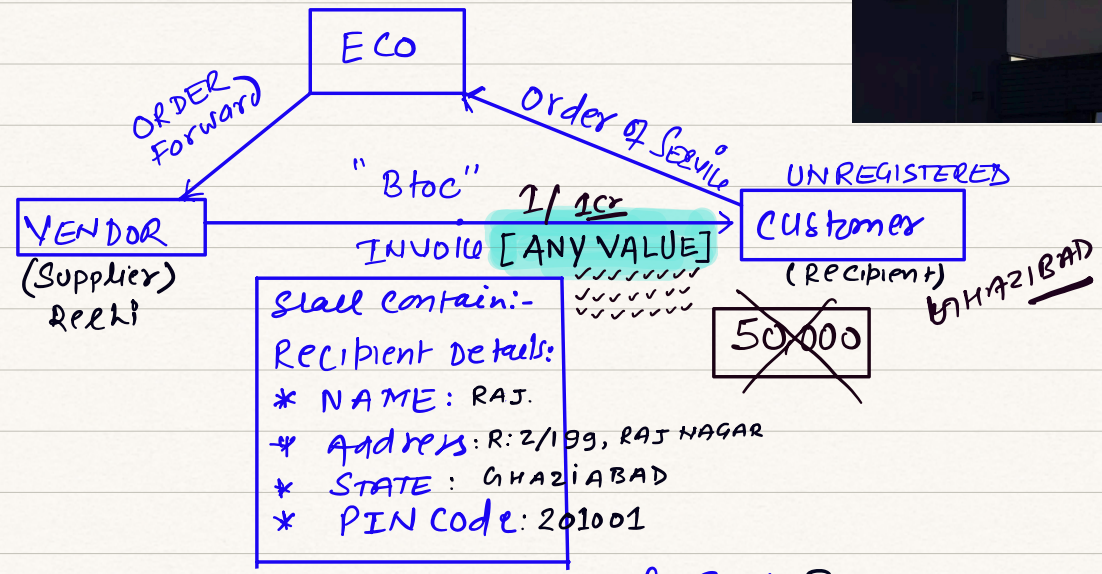 ECO
ORDER
Forward
Order of Service
"BtoC"
1/ 1Cr
UNREGISTERED
VENDOR
INVOICE [ANY VALUE]
Customer
(Supplier)
Delhi
(Recipient)
GHAZIBAD
50,000
Shall Contain:-
Recipient Details:
* NAME: RAJ.
* Address: R: 2/199, RAJ NAGAR
* STATE: GHAZIABAD
* PIN Code: 201001